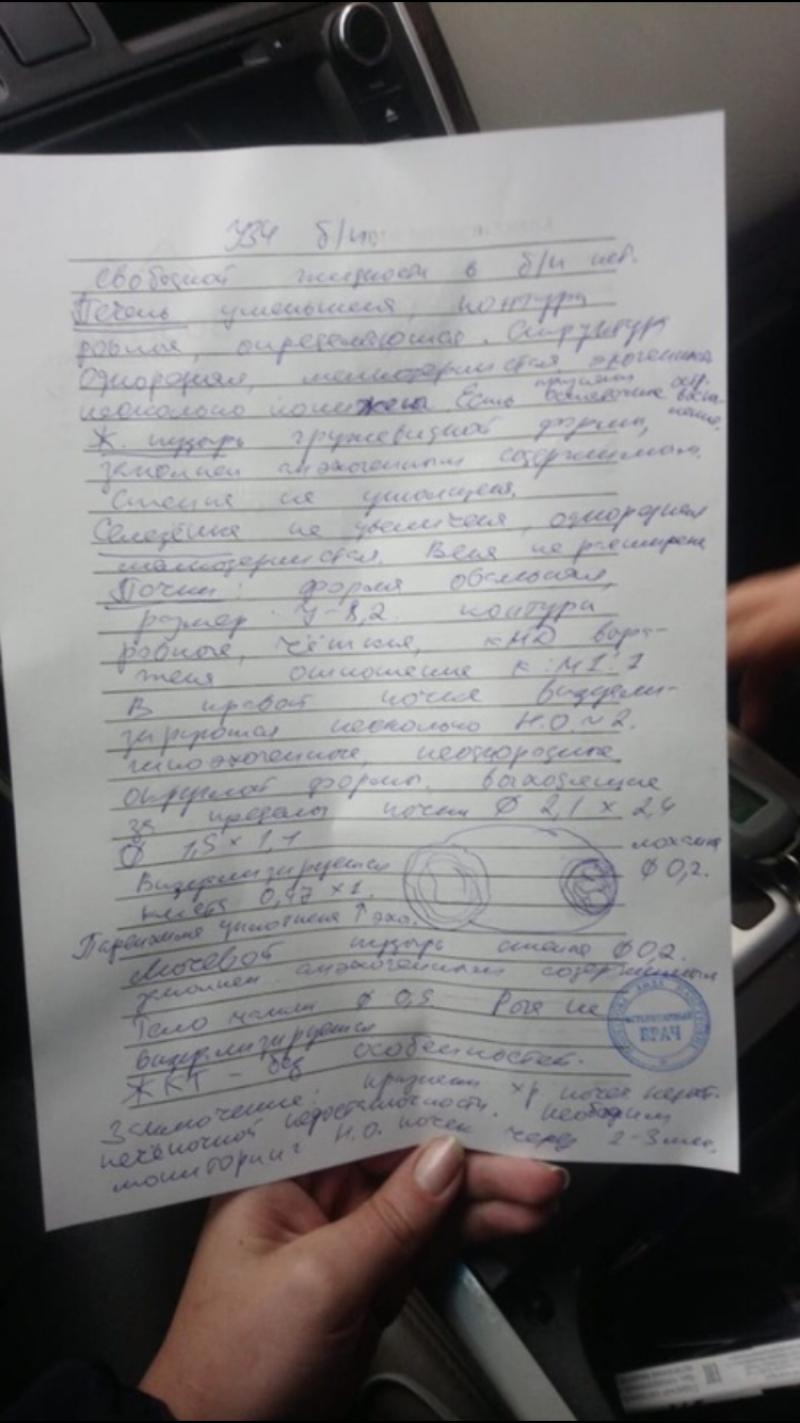 УЗИ б/п
Свободной жидкости в б/п нет.
Печень уменьшена, контура
ровные, структура
однородная, мелкозернистая, эхогенность
несколько понижена. Есть признаки
Ж. пузырь грушевидной формы,
заполнен анэхогенным содержимым.
Стенка не утолщена.
Селезёнка не увеличена, однородная
мелкозернистая. Вена не расширена
Почки: форма обычная,
размер 4-8,2. контура
ровные, чёткие, КМД выра-
жена отношение к:м 1:1
В правой почке визуали-
зируются несколько Н.О. ~ 2.
гипоэхогенные, неоднородные,
округлой формы. выходящие
за пределы почки Ø 2,1 × 2,4
Ø 1,5 × 1,1
лоханка
Визуализируется Ø 0,2.
киста 0,47 × 1.
Паренхима уплотнена ↑ эхо.
Мочевой пузырь стенка Ø 0,2.
заполнен анэхогенным содержимым
Тело матки Ø 0,5 Рога не
визуализируется
ЖКТ - без особенностей.
Заключение: признаки хр. почеч
печёночной недостаточности. Необходим
мониторинг Н.О. почек через 2-3 мес.
ВЕТЕРИНАРНЫЙ
ВРАЧ